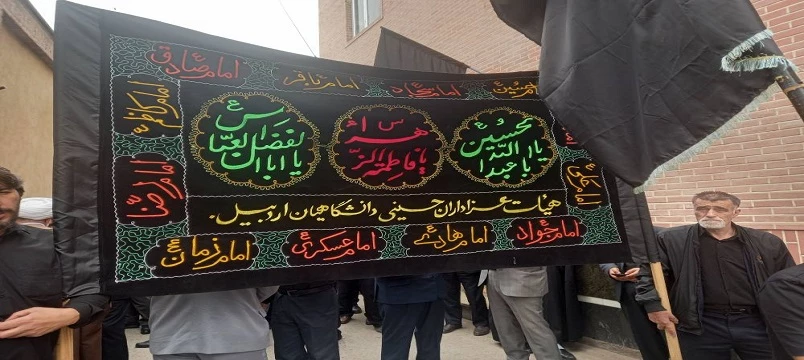 امام سجاد
امام باقر
امام صادق
امام کاظم
امام رضا
یا ابا عبدالله الحسین
یا فاطمة الزهرا س
یا اباالفضل العباس
هیأت عزاداران حسینی دانشگاهیان اردبیل.
امام جواد
امام هادی
امام عسکری
امام زمان